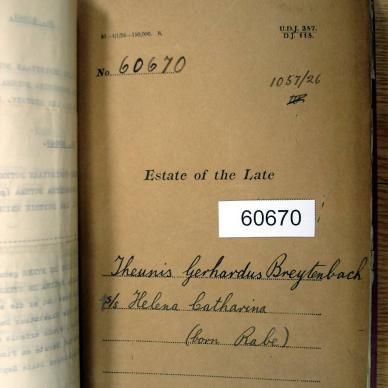 U.D.J. 357.
D.J. 115.
No. 60670
1057/26
Estate of the Late
60670
Theunis Gerhardus Breytenbach
s/s Helena Catharina
(born Rabe)